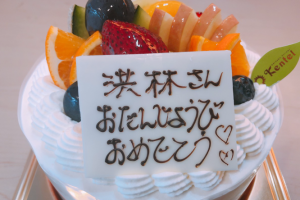 洪林さん
おたんじょうび
おめでとう♡♡
Keniel